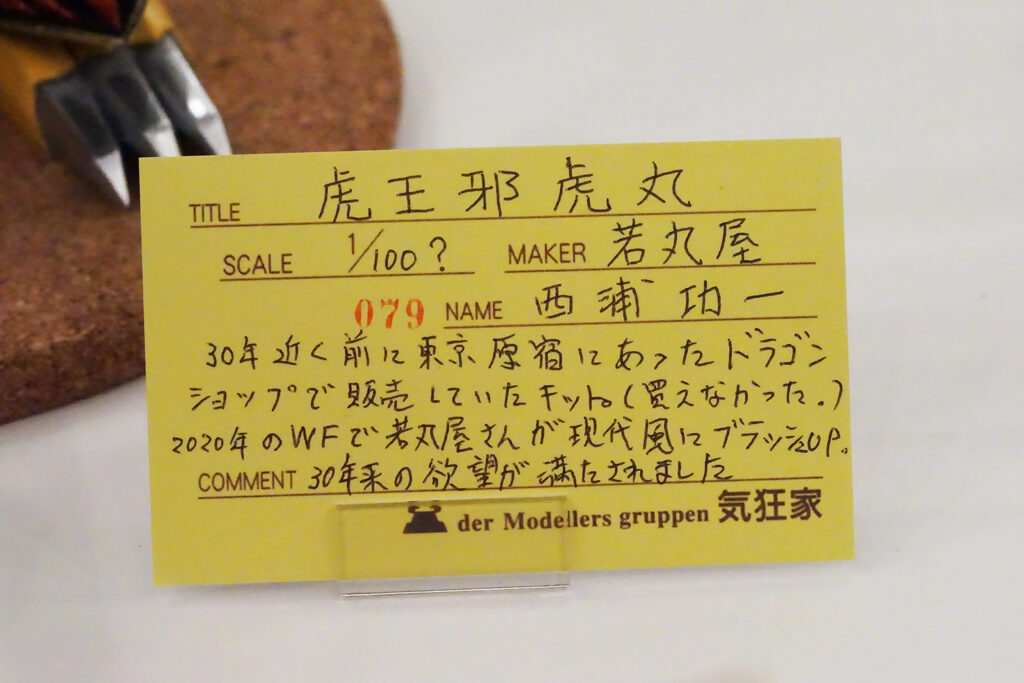 TITLE 虎王邪虎丸
SCALE 1/100? MAKER 若丸屋
079 NAME 西浦功一
30年近く前に東京原宿にあったドラゴン
ショップで販売していたキット。(買えなかった。)
2020年のWFで若丸屋さんが現代風にブラッシュUP。
COMMENT 30年来の欲望が満たされました
der Modellers gruppen 気狂家